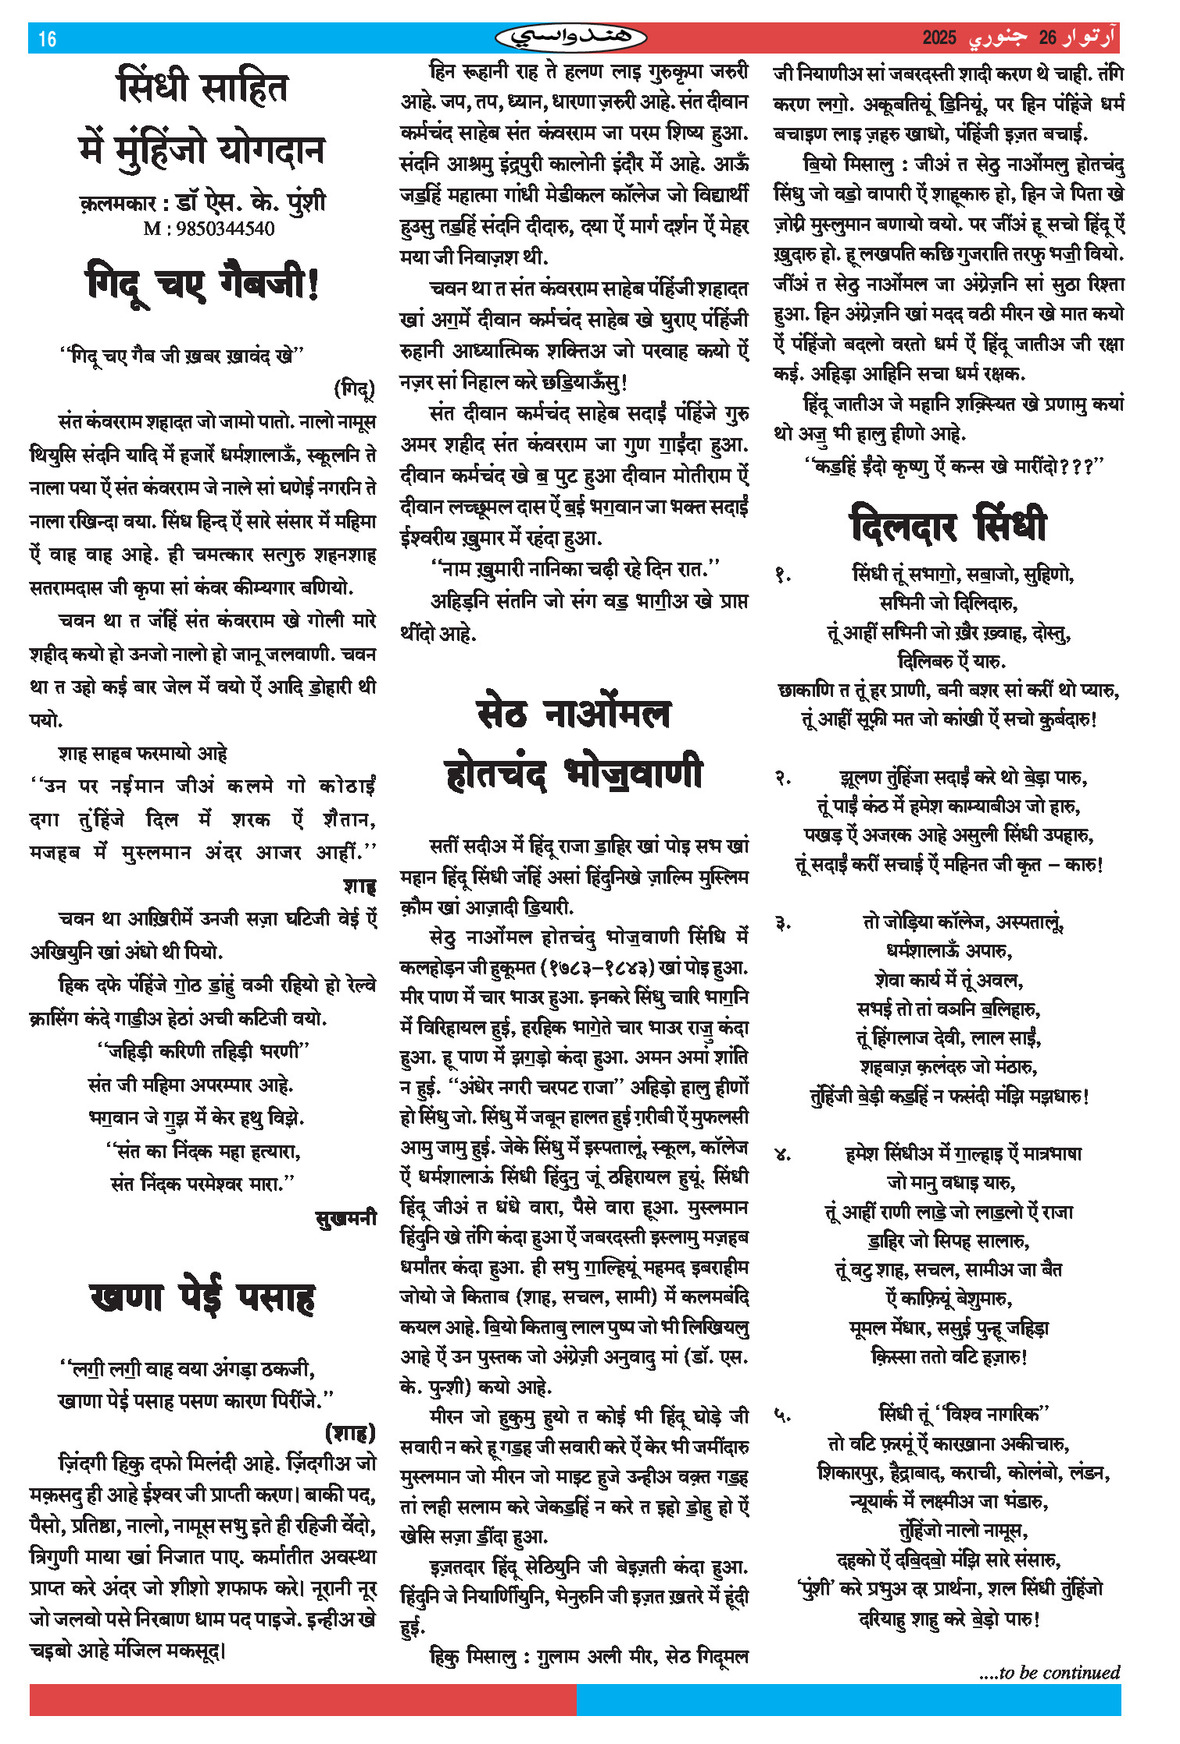 16
هندواسي
آرتوار 26 جنوري 2025
सिंधी साहित
में मुंहिंजो योगदान
क़लमकार : डॉ ऐस. के. पुंशी
M : 9850344540
गिदू चए गैबजी!
‘‘गिदू चए गैब जी ख़बर ख़ावंद खे’’
(गिदू)
संत कंवरराम शहादत जो जामो पातो. नालो नामूस
थियुसि संदनि यादि में हजारें धर्मशालाऊँ, स्कूलनि ते
नाला पया ऐं संत कंवरराम जे नाले सां घणेई नगरनि ते
नाला रखिन्दा वया. सिंध हिन्द ऐं सारे संसार में महिमा
ऐं वाह वाह आहे. ही चमत्कार सत्गुरु शहनशाह
सतरामदास जी कृपा सां कंवर कीम्यगार बणियो.
चवन था त जंहिं संत कंवरराम खे गोली मारे
शहीद कयो हो उनजो नालो हो जानू जलवाणी. चवन
था त उहो कई बार जेल में वयो ऐं आदि ड॒ोहारी थी
पयो.
शाह साहब फरमायो आहे
‘‘उन पर नईमान जीअं कलमे गो कोठाईं
दगा तुंहिंजे दिल में शरक ऐं शैतान,
मजहब में मुस्लमान अंदर आजर आहीं.’’
शाह
चवन था आख़िरीमें उनजी सज़ा घटिजी वेई ऐं
अखियुनि खां अंधो थी पियो.
हिक दफे पंहिंजे ग॒ोठ ड॒ांहुं वञी रहियो हो रेल्वे
क्रासिंग कंदे गाडी॒अ हेठां अची कटिजी वयो.
‘‘जहिड़ी करिणी तहिड़ी भरणी’’
संत जी महिमा अपरम्पार आहे.
भग॒वान जे गु॒झ में केर हथु विझे.
‘‘संत का निंदक महा हत्यारा,
संत निंदक परमेश्वर मारा.’’
सुखमनी
खणा पेई पसाह
‘‘लग॒ी लग॒ी वाह वया अंगड़ा ठकजी,
खाणा पेई पसाह पसण कारण पिरींजे.’’
(शाह)
ज़िंदगी हिकु दफो मिलंदी आहे. ज़िंदगीअ जो
मक़सदु ही आहे ईश्वर जी प्राप्ती करण। बाकी पद,
पैसो, प्रतिष्ठा, नालो, नामूस सभु इते ही रहिजी वेंदो,
त्रिगुणी माया खां निजात पाए. कर्मातीत अवस्था
प्राप्त करे अंदर जो शीशो शफाफ करे। नूरानी नूर
जो जलवो पसे निरबाण धाम पद पाइजे. इन्हीअ खे
चइबो आहे मंजिल मकसूद।
हिन रूहानी राह ते हलण लाइ गुरुकृपा जरुरी
आहे. जप, तप, ध्यान, धारणा ज़रुरी आहे. संत दीवान
कर्मचंद साहेब संत कंवरराम जा परम शिष्य हुआ.
संदनि आश्रमु इंद्रपुरी कालोनी इंदौर में आहे. आऊँ
जड॒हिं महात्मा गांधी मेडीकल कॉलेज जो विद्यार्थी
हुउसु तड॒हिं संदनि दीदारु, दया ऐं मार्ग दर्शन ऐं मेहर
मया जी निवाज़श थी.
चवन था त संत कंवरराम साहेब पंहिंजी शहादत
खां अग॒में दीवान कर्मचंद साहेब खे घुराए पंहिंजी
रुहानी आध्यात्मिक शक्तिअ जो परवाह कयो ऐं
नज़र सां निहाल करे छडि॒याऊँसु!
संत दीवान कर्मचंद साहेब सदाईं पंहिंजे गुरु
अमर शहीद संत कंवरराम जा गुण ग॒ाईंदा हुआ.
दीवान कर्मचंद खे ब॒ पुट हुआ दीवान मोतीराम ऐं
दीवान लच्छूमल दास ऐं ब॒ई भग॒वान जा भक्त सदाईं
ईश्वरीय ख़ुमार में रहंदा हुआ.
‘‘नाम ख़ुमारी नानिका चढ़ी रहे दिन रात.’’
अहिड़नि संतनि जो संग वड॒ भाग॒ीअ खे प्राप्त
थींदो आहे.
सेठ नाओंमल
होतचंद भोज॒वाणी
सतीं सदीअ में हिंदू राजा ड॒ाहिर खां पोइ सभ खां
महान हिंदू सिंधी जंहिं असां हिंदुनिखे ज़ाल्मि मुस्लिम
क़ौम खां आज़ादी डि॒यारी.
सेठु नाओंमल होतचंदु भोज॒वाणी सिंधि में
कलहोड़न जी हुकूमत (१७८३–१८४३) खां पोइ हुआ.
मीर पाण में चार भाउर हुआ. इनकरे सिंधु चारि भाग॒नि
में विरिहायल हुई, हरहिक भाग॒े ते चार भाउर राजु॒ कंदा
हुआ. हू पाण में झग॒ड़ो कंदा हुआ. अमन अमां शांति
न हुई. ‘‘अंधेर नगरी चरपट राजा’’ अहिड़ो हालु हीणों
हो सिंधु जो. सिंधु में जबून हालत हुई ग़रीबी ऐं मुफलसी
आमु जामु हुई. जेके सिंधु में इस्पतालूं, स्कूल, कॉलेज
ऐं धर्मशालाऊं सिंधी हिंदुनु जूं ठहिरायल हुयूं. सिंधी
हिंदू जीअं त धंधे वारा, पैसे वारा हूआ. मुस्लमान
हिंदुनि खे तंगि कंदा हुआ ऐं जबरदस्ती इस्लामु मज़हब
धर्मांतर कंदा हुआ. ही सभु ग॒ाल्हियूं महमद इबराहीम
जोयो जे किताब (शाह, सचल, सामी) में कलमबंदि
कयल आहे. बि॒यो किताबु लाल पुष्प जो भी लिखियलु
आहे ऐं उन पुस्तक जो अंग्रेज़ी अनुवादु मां (डॉ. एस.
के. पुन्शी) कयो आहे.
मीरन जो हुकुमु हुयो त कोई भी हिंदू घोड़े जी
सवारी न करे हू गड॒ह जी सवारी करे ऐं केर भी जमींदारु
मुसलमान जो मीरन जो माइट हुजे उन्हीअ वक़्त गड॒ह
तां लही सलाम करे जेकड॒हिं न करे त इहो ड॒ोहु हो ऐं
खेसि सज़ा ड॒ींदा हुआ.
इज़तदार हिंदू सेठियुनि जी बेइज़ती कंदा हुआ.
हिंदुनि जे नियार्णियुनि, भेनुरुनि जी इज़त ख़तरे में हूंदी
हुई.
हिकु मिसालु : ग़ुलाम अली मीर, सेठ गिदूमल
जी नियाणीअ सां जबरदस्ती शादी करण थे चाही. तंगि
करण लग॒ो. अकूबतियूं डि॒नियूं, पर हिन पंहिंजे धर्म
बचाइण लाइ ज़हरु खाधो, पंहिंजी इज़त बचाई.
बि॒यो मिसालु : जीअं त सेठु नाओंमलु होतचंदु
सिंधु जो वड॒ो वापारी ऐं शाहूकारु हो, हिन जे पिता खे
ज़ोरीअ मुस्लुमान बणायो वयो. पर जींअं हू सचो हिंदू ऐं
ख़ुदारु हो. हू लखपति कछि गुजराति तरफु भज॒ी वियो.
जींअं त सेठु नाओंमल जा अंग्रेज़नि सां सुठा रिश्ता
हुआ. हिन अंग्रेज़नि खां मदद वठी मीरन खे मात कयो
ऐं पंहिंजो बदलो वरतो धर्म ऐं हिंदू जातीअ जी रक्षा
कई. अहिड़ा आहिनि सचा धर्म रक्षक.
हिंदू जातीअ जे महानि शक़्स्यित खे प्रणामु कयां
थो अजु॒ भी हालु हीणो आहे.
‘‘कड॒हिं ईंदो कृष्णु ऐं कन्स खे मारींदो???’’
दिलदार सिंधी
१. सिंधी तूं सभाग॒ो, सब॒ाजो, सुहिणो,
सभिनी जो दिलिदारु,
तूं आहीं सभिनी जो ख़ैर ख़्वाह, दोस्तु,
दिलिबरु ऐं यारु.
छाकाणि त तूं हर प्राणी, बनी बशर सां करीं थो प्यारु,
तूं आहीं सूफ़ी मत जो कांखी ऐं सचो क़ुर्बदारु!
२. झूलण तुंहिंजा सदाईं करे थो बे॒ड़ा पारु,
तूं पाईं कंठ में हमेश काम्याबीअ जो हारु,
पखड़ ऐं अजरक आहे असुली सिंधी उपहारु,
तूं सदाईं करीं सचाई ऐं महिनत जी कृत – कारु!
३. तो जोड़िया कॉलेज, अस्पतालूं,
धर्मशालाऊँ अपारु,
शेवा कार्य में तूं अवल,
सभई तो तां वञनि ब॒लिहारु,
तूं हिंगलाज देवी, लाल साईं,
शहबाज़ क़लंदरु जो मंठारु,
तुंहिंजी बे॒ड़ी कड॒हिं न फसंदी मंझि मझधारु!
४. हमेश सिंधीअ में ग॒ाल्हाइ ऐं मात्रभाषा
जो मानु वधाइ यारु,
तूं आहीं राणी लाडे॒ जो लाड॒लो ऐं राजा
ड॒ाहिर जो सिपह सालारु,
तूं वटु शाह, सचल, सामीअ जा बैत
ऐं काफ़ियूं बेशुमारु,
मूमल मेंधार, ससुई पुन्हू जहिड़ा
क़िस्सा ततो वटि हज़ारु!
५. सिंधी तूं ‘‘विश्व नागरिक’’
तो वटि फ़रमूं ऐं कारख़ाना अकीचारु,
शिकारपुर, हैद्राबाद, कराची, कोलंबो, लंडन,
न्यूयार्क में लक्ष्मीअ जा भंडारु,
तुंहिंजो नालो नामूस,
दहको ऐं दबि॒दब॒ो मंझि सारे संसारु,
‘पुंशी’ करे प्रभुअ दर प्रार्थना, शल सिंधी तुंहिंजो
दरियाहु शाहु करे बे॒ड़ो पारु!
....to be continued